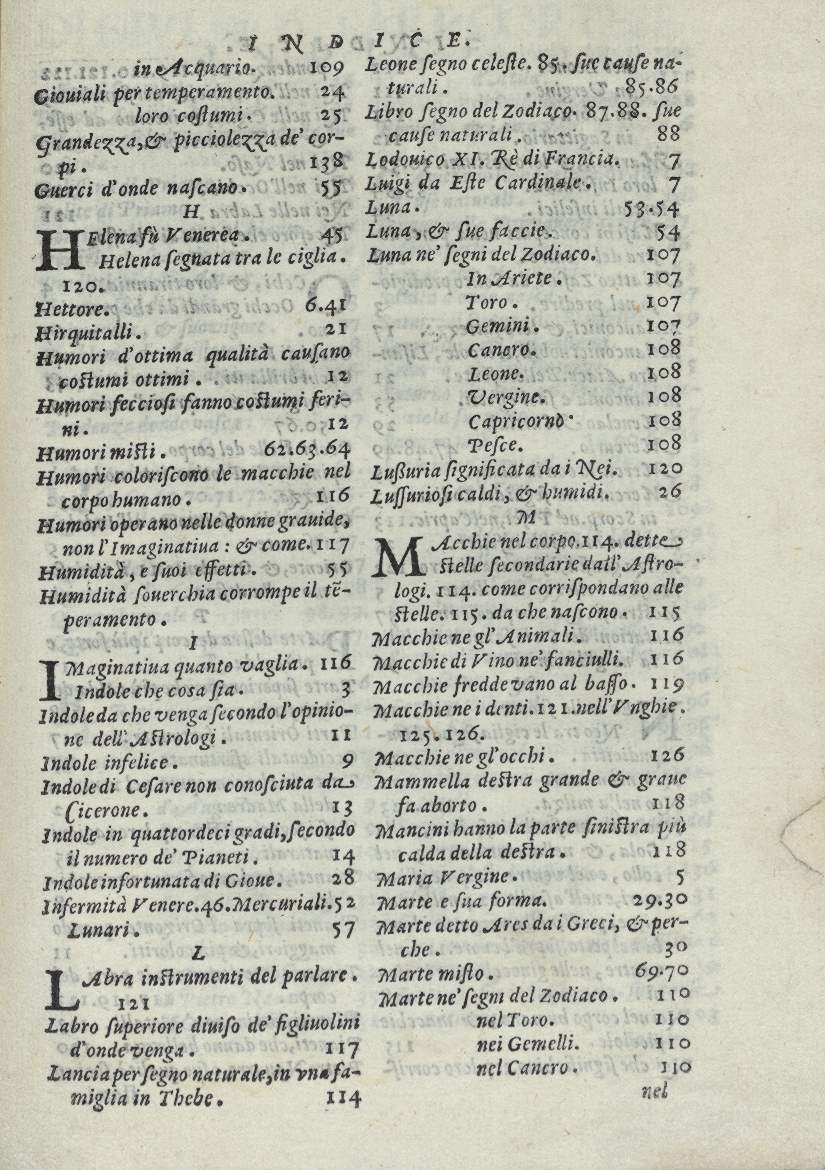 INDICE.
in Acquario. 109
Giouiali per temperamento. 24
loro costumi. 25
Grandezza, & picciolezza de' cor-
pi. 138
Guerci d'onde nascano. 55
H
HElena fù Venerea. 45
Helena segnata tra le ciglia.
120.
Hettore. 6.41
Hirquitalli. 21
Humori d'ottima qualità causano
costumi ottimi. 12
Humori fecciosi fanno costumi feri-
ni. 12
Humori misti. 62.63.64
Humori coloriscono le macchie nel
corpo humano. 116
Humori operano nelle donne grauide,
non l'Imaginatiua: & come. 117
Humidità, e suoi effetti. 55
Humidità souerchia corrompe il tẽ-
peramento.
I
IMaginatiua quanto vaglia. 116
Indole che cosa sia. 3
Indole da che venga secondo l'opinio-
ne dell'Astrologi. 11
Indole infelice. 9
Indole di Cesare non conosciuta da
Cicerone. 13
Indole in quattordeci gradi, secondo
il numero de' Pianeti. 14
Indole infortunata di Gioue. 28
Infermità Venere. 46. Mercuriali. 52
Lunari. 57
L
LAbra instrumenti del parlare.
121
Labro superiore diuiso de' figliuolini
d'onde venga. 117
Lancia per segno naturale, in vna fa-
miglia in Thebe. 114
Leone segno celeste. 85. sue cause na-
turali. 85.86
Libro segno del Zodiaco. 87.88. sue
cause naturali. 88
Lodouico XI. Rè di Francia. 7
Luigi da Este Cardinale. 7
Luna. 53.54
Luna, & sue faccie. 54
Luna ne' segni del Zodiaco. 107
In Ariete. 107
Toro. 107
Gemini. 107
Cancro. 108
Leone. 108
Vergine. 108
Capricorno. 108
Pesce. 108
Lußuria significata da i Nei. 120
Lussuriosi caldi, & humidi. 26
M
MAcchie nel corpo. 114. dette
stelle secondarie dall'Astro-
logi. 114. come corrispondano alle
stelle. 115. da che nascono. 115
Macchie ne gl'Animali. 116
Macchie di Vino ne' fanciulli. 116
Macchie fredde vano al basso. 119
Macchie ne i denti. 121. nell'Vnghie.
125. 126.
Macchie ne gl'occhi. 126
Mammella destra grande & graue
fa aborto. 118
Mancini hanno la parte sinistra più
calda della destra. 118
Maria Vergine. 5
Marte e sua forma. 29.30
Marte detto Ares da i Greci, & per-
che. 30
Marte misto. 69.70
Marte ne' segni del Zodiaco. 110
nel Toro. 110
nei Gemelli. 110
nel Cancro. 110
nel